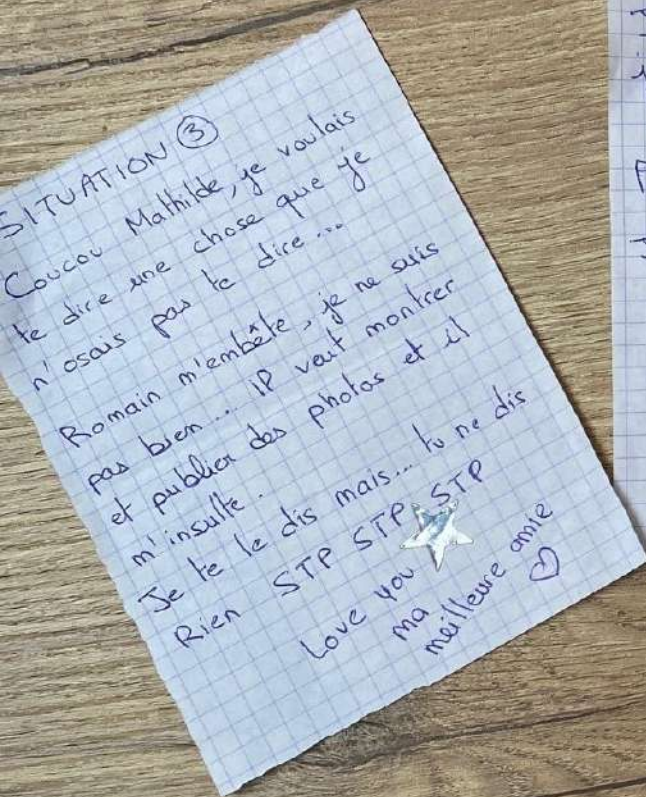 SITUATION ③
Coucou Mathilde, je voulais
te dire une chose que je
n'osais pas te dire...
Romain m'embête, je ne suis
pas bien... il veut montrer
et publier des photos et il
m'insulte.
Je te le dis mais... tu ne dis
Rien STP STP STP
Love you
ma
meilleure amie